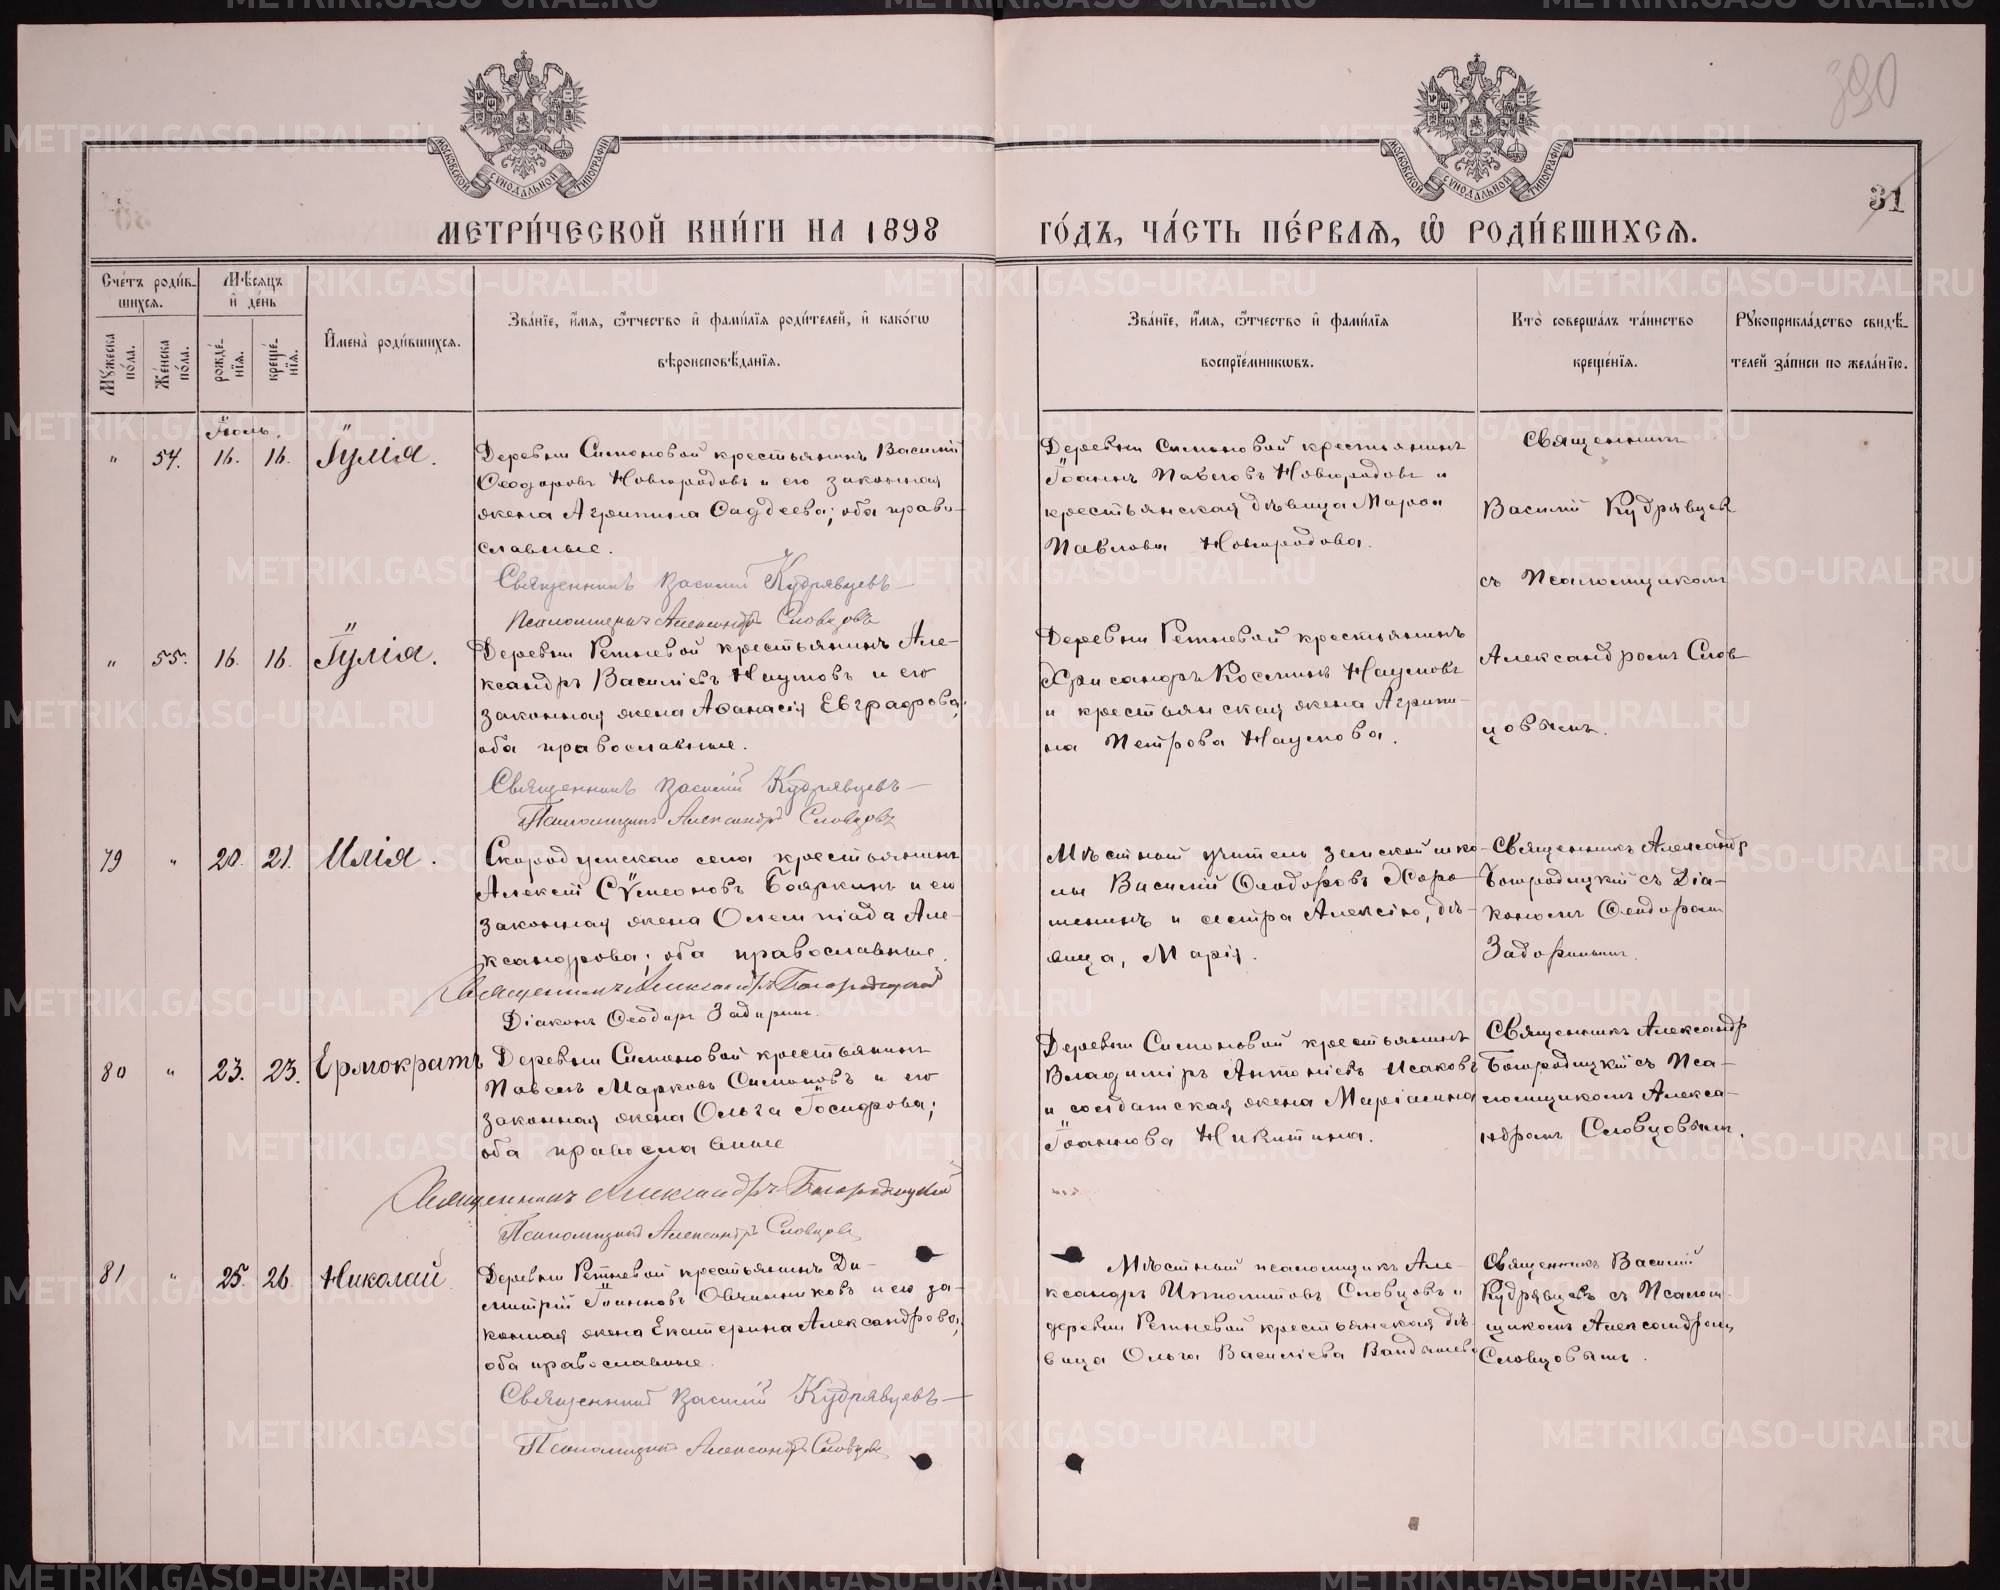 390
МОСКОВСКОЙ СѴНОДАЛЬНОЙ ТИПОГРАФІИ
МОСКОВСКОЙ СѴНОДАЛЬНОЙ ТИПОГРАФІИ
31
МЕТРИ́ЧЕСКОЙ КНИ́ГИ НА 1898 ГО́ДЪ, ЧА́СТЬ ПЕ́РВАѦ, Ѽ РОДИ́ВШИХСѦ.
Сче́тъ роди́в-
шихсѧ.
Мѣ́сѧцъ
и҆ де́нь
Мꙋ́жеска
по́ла.
Же́нска
по́ла.
рожде́-
нїѧ.
креще́-
нїѧ.
И҆мена̀ роди́вшихсѧ.
Зва́нїе, и҆́мѧ, ѻ҆́тчество и҆ фами́лїѧ роди́телей, и҆ како́гѡ
вѣроисповѣ́данїѧ.
Зва́нїе, и҆́мѧ, ѻ҆́тчество и҆ фами́лїѧ
воспрїе́мникѡвъ.
Кто̀ соверша́лъ та́инство
креще́нїѧ.
Рꙋкоприкла́дство свидѣ́-
телей за́писи по жела́нїю.
Іюль.
" 54. 16. 16. Іулія.
Деревни Симоновой крестьянинъ Василій
Ѳеодоровъ Новгородовъ и его законная
жена Агрипина Фаддеева; оба право-
славные.
Священникъ Василій Кудрявцевъ
Псаломщикъ Александръ Словцовъ
Деревни Симоновой крестьянинъ
Іоаннъ Павловъ Новгородовъ и
крестьянская дѣвица Марѳа
Павлова Новгородова.
Священникъ
Василій Кудрявцев
съ Псаломщикомъ
Александромъ Слов
цовымъ.
" 55. 16. 16. Іулія.
Деревни Ретневой крестьянинъ Але-
ксандръ Василіевъ Наумовъ и его
законная жена Аѳанасія Евграфова;
оба православные.
Священникъ Василій Кудрявцевъ
Псаломщикъ Александръ Словцовъ
Деревни Ретневой крестьянинъ
Хрисанѳръ Косминъ Наумовъ
и крестьянская жена Агрипи-
на Петрова Наумова.
79 " 20. 21. Илія.
Скородумскаго села крестьянинъ
Алексій Сѵмеоновъ Бояркинъ и его
законная жена Олимпіада Але-
ксандрова; оба православные.
Священникъ Александръ Богородицкій
Діаконъ Ѳеодоръ Задоринъ.
Мѣстный учитель земской шко-
лы Василій Ѳеодоровъ Хоро-
шенинъ и сестра Алексію, дѣ-
вица, Марія.
Священникъ Александр
Богородицкій съ Діа-
кономъ Ѳеодоромъ
Задоринымъ.
80 " 23. 23. Ермократъ
Деревни Симоновой крестьянинъ
Павелъ Марковъ Симоновъ и его
законная жена Ольга Іосифова;
оба православные
Священникъ Александръ Богородицкій
Псаломщикъ Александръ Словцовъ
Деревни Симоновой крестьянинъ
Владимиръ Антоніевъ Исаковъ
и солдатская жена Маріамна
Іоаннова Никитина.
Священникъ Александр
Богородицкій съ Пса-
ломщикомъ Алекса-
ндромъ Словцовымъ.
81 " 25. 26. Николай
Деревни Ретневой крестьянинъ Ди-
митрій Іоанновъ Овчинниковъ и его за-
конная жена Екатерина Александрова;
оба православные.
Священникъ Василій Кудрявцевъ
Псаломщикъ Александръ Словцовъ
Мѣстный псаломщикъ Але-
ксандръ Ипполитовъ Словцовъ и
деревни Ретневой крестьянская дѣ-
вица Ольга Василіева
Священникъ Василій
Кудрявцевъ съ Псалом-
щикомъ Александромъ
Словцовымъ.
METRIKI.GASO-URAL.RU